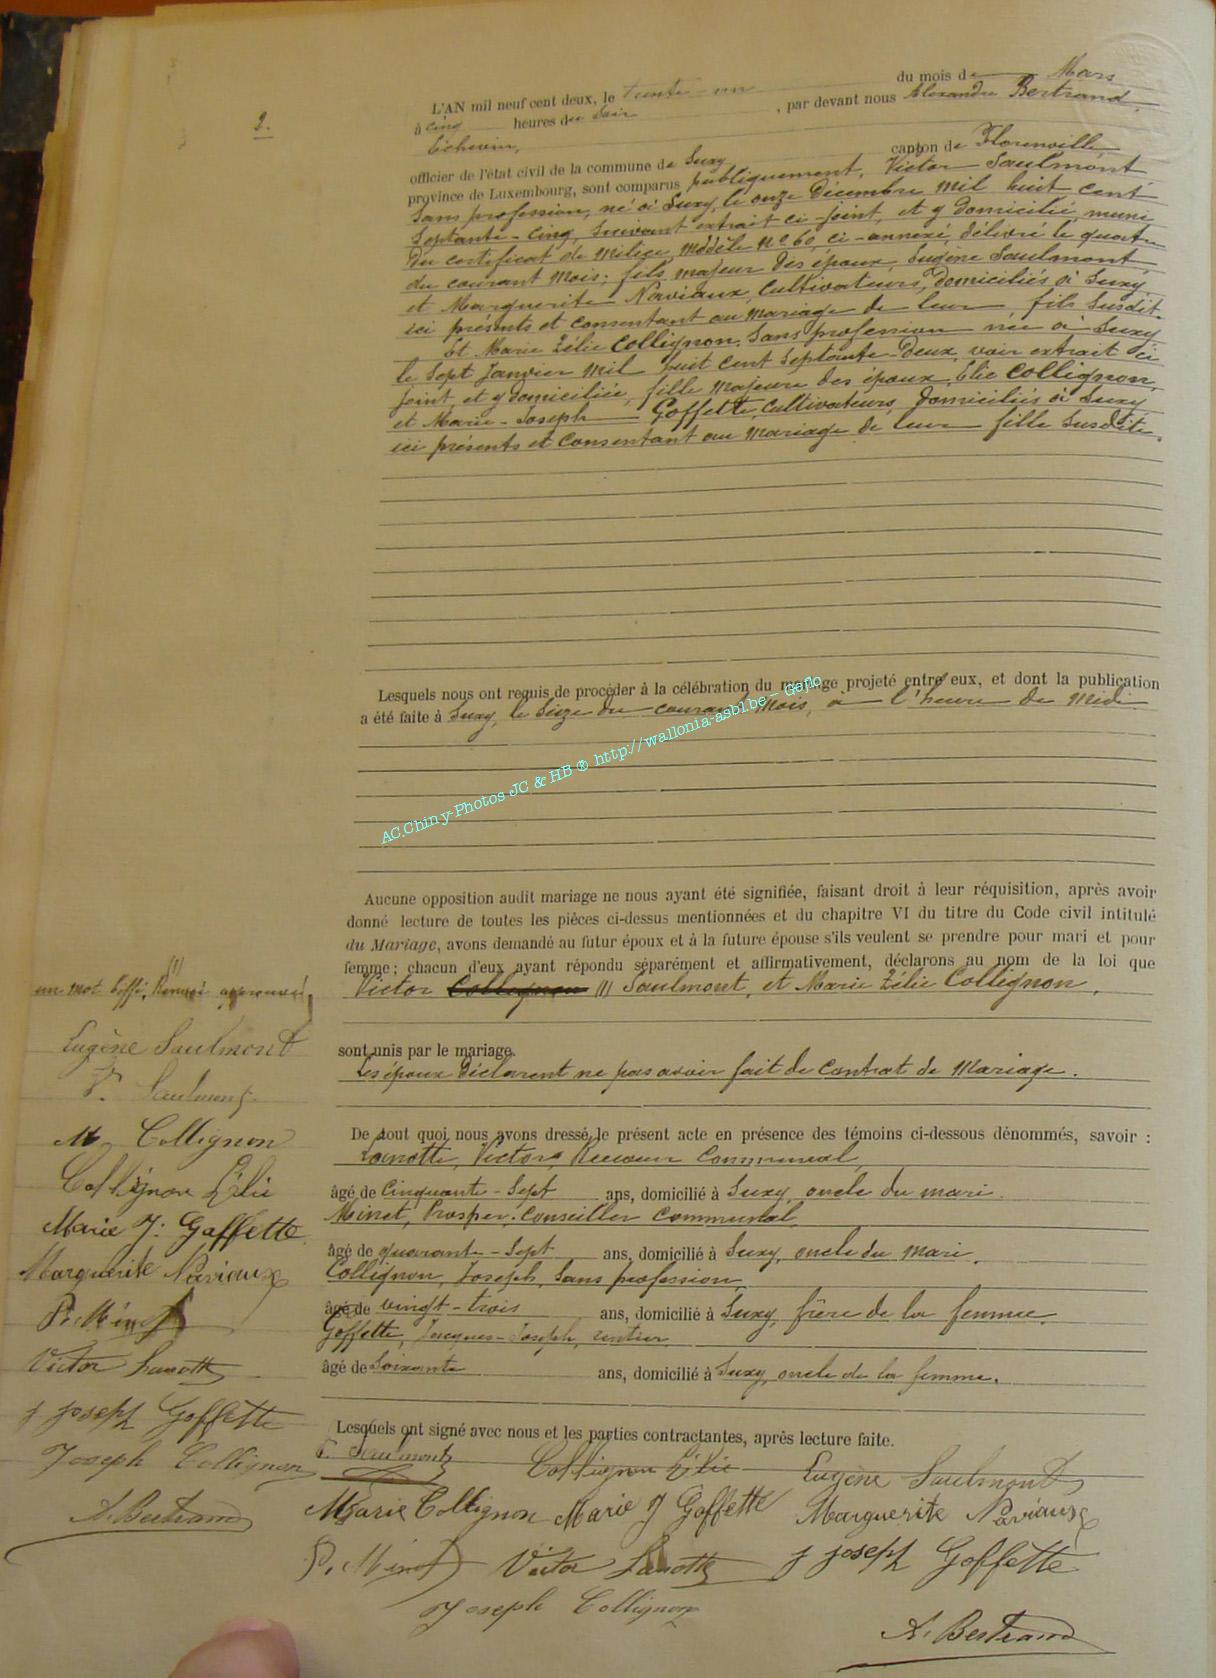 2.
L'AN mil neuf cent deux, le trente-un du mois de Mars
à cinq heures du Soir, par devant nous Alexandre Bertrand,
Echevin,
officier de l'état civil de la commune de Suxy canton de Florenville
province de Luxembourg, sont comparus publiquement, Victor Saulmont
Sans profession, né à Suxy, le onze Décembre mil huit cent
Septante-Cinq, suivant extrait ci-joint, et y domicilié, muni
du certificat de Milice, Modèle N° 60, ci-annexé, délivré le quatre
du courant mois; fils majeur des époux Eugène Saulmont
et Marguerite Naviaux, Cultivateurs, domiciliés à Suxy
ici présents et consentant au mariage de leur fils Susdit.
Et Marie Zélie Collignon, Sans profession née à Suxy
le Sept Janvier mil huit cent Septante-Deux, voir extrait ci
joint, et y domiciliée, fille majeure des époux Elie Collignon,
et Marie-Joseph Goffette, Cultivateurs, domiciliés à Suxy
ici présents et consentant au mariage de leur fille Susdite.
Lesquels nous ont requis de procéder à la célébration du mariage projeté entre eux, et dont la publication
a été faite à Suxy, le Seize du courant Mois, à l'heure de Midi
AC.Chiny-Photos JC & HB ® http://wallonia-asbl.be - Geflo
Aucune opposition audit mariage ne nous ayant été signifiée, faisant droit à leur réquisition, après avoir
donné lecture de toutes les pièces ci-dessus mentionnées et du chapitre VI du titre du Code civil intitulé
du Mariage, avons demandé au futur époux et à la future épouse s'ils veulent se prendre pour mari et pour
femme; chacun d'eux ayant répondu séparément et affirmativement, déclarons au nom de la loi que
Victor Collignon /// Saulmont, et Marie Zélie Collignon,
sont unis par le mariage.
Les époux Déclarent ne pas avoir fait de Contrat de Mariage.
De tout quoi nous avons dressé le présent acte en présence des témoins ci-dessous dénommés, savoir :
Lanotte, Victor, Receveur Communal,
âgé de Cinquante-Sept ans, domicilié à Suxy, oncle du mari.
Minet, Prosper, Conseiller Communal,
âgé de quarante-Sept ans, domicilié à Suxy, oncle du Mari,
Collignon, Joseph, Sans profession,
âgé de vingt-trois ans, domicilié à Suxy, frère de la femme.
Goffette, Jacques-Joseph, rentier
âgé de Soixante ans, domicilié à Suxy, oncle de la femme.
Lesquels ont signé avec nous et les parties contractantes, après lecture faite.
V. Saulmont Collignon Elie Eugène Saulmont
Marie Collignon Marie J Goffette Marguerite Naviaux
P. Minet Victor Lanotte J Joseph Goffette
Joseph Collignon
A. Bertrand
///
un mot biffé, Renvoi approuvé,
Eugène Saulmont
V. Saulmont
M Collignon
Collignon Elie
Marie J: Goffette
Marguerite Naviaux
P. Minet
Victor Lanotte
J Joseph Goffette
Joseph Collignon
A. Bertrand